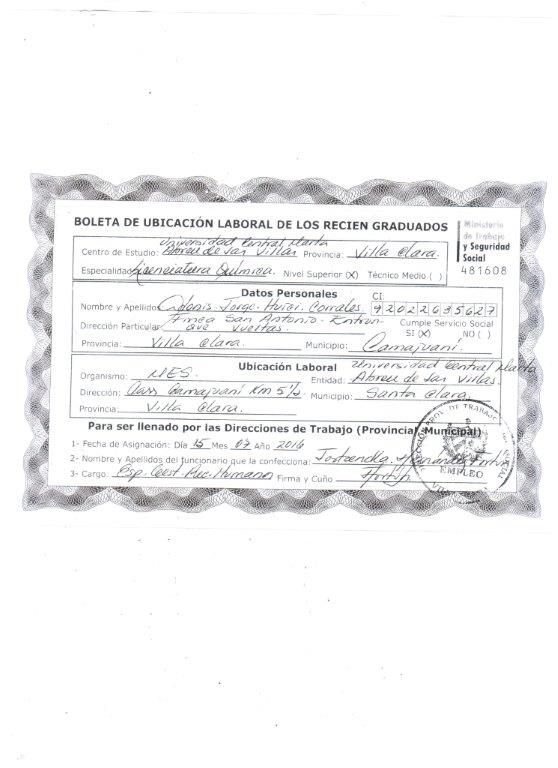 BOLETA DE UBICACIÓN LABORAL DE LOS RECIEN GRADUADOS
Ministerio
de Trabajo
y Seguridad
Social
481608
Universidad Central Marta
Centro de Estudio: Abreu de Las Villas Provincia: Villa Clara.
Especialidad Licenciatura Química. Nivel Superior (X) Técnico Medio ( )
Datos Personales
CI
Nombre y Apellidos Adonis Jorge Corrales 92022635627
Dirección Particular Finca San Antonio. Entron
que Vueltas. Cumple Servicio Social
SI (X) NO ( )
Provincia: Villa Clara. Municipio: Camajuaní.
Ubicación Laboral
Universidad Central Marta
Organismo: MES. Entidad: Abreu de Las Villas.
Dirección: Carr Camajuaní Km 5½ Municipio: Santa Clara
Provincia: Villa Clara.
Para ser llenado por las Direcciones de Trabajo (Provincial Municipal)
1- Fecha de Asignación: Día 15 Mes 07 Año 2016
2- Nombre y Apellidos del funcionario que la confecciona: Hernández
3- Cargo: Esp. Gest Rec. Humanos Firma y Cuño
DE TRABAJO
EMPLEO